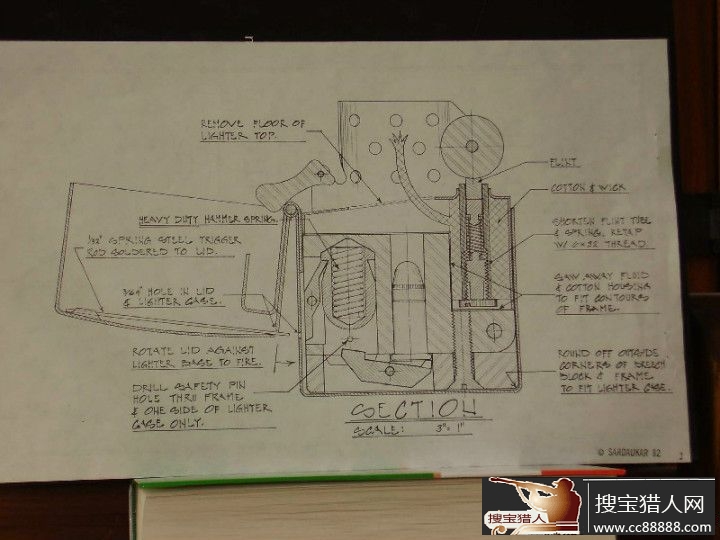 REMOVE FLOOR OF
LIGHTER TOP.
HEAVY DUTY HAMMER SPRING.
1/32" SPRING STEEL TRIGGER
ROD SOLDERED TO LID.
HOLE IN LID
& LIGHTER CASE.
ROTATE LID AGAINST
LIGHTER BASE TO FIRE.
DRILL SAFETY PIN
HOLE THRU FRAME
& ONE SIDE OF LIGHTER
CASE ONLY.
FLINT
COTTON & WICK
SHORTEN FLINT TUBE
& SPRING, RETAP
W/ 6x32 THREAD.
SAW AWAY FLUID
& COTTON HOUSING
TO FIT CONTOURS
OF FRAME.
ROUND OFF OUTSIDE
CORNERS OF BREECH
BLOCK & FRAME
TO FIT LIGHTER CASE.
SECTION
SCALE: 3"=1"
© SARDAUKAR 82
搜宝猎人
搜宝猎人网
www.cc88888.com